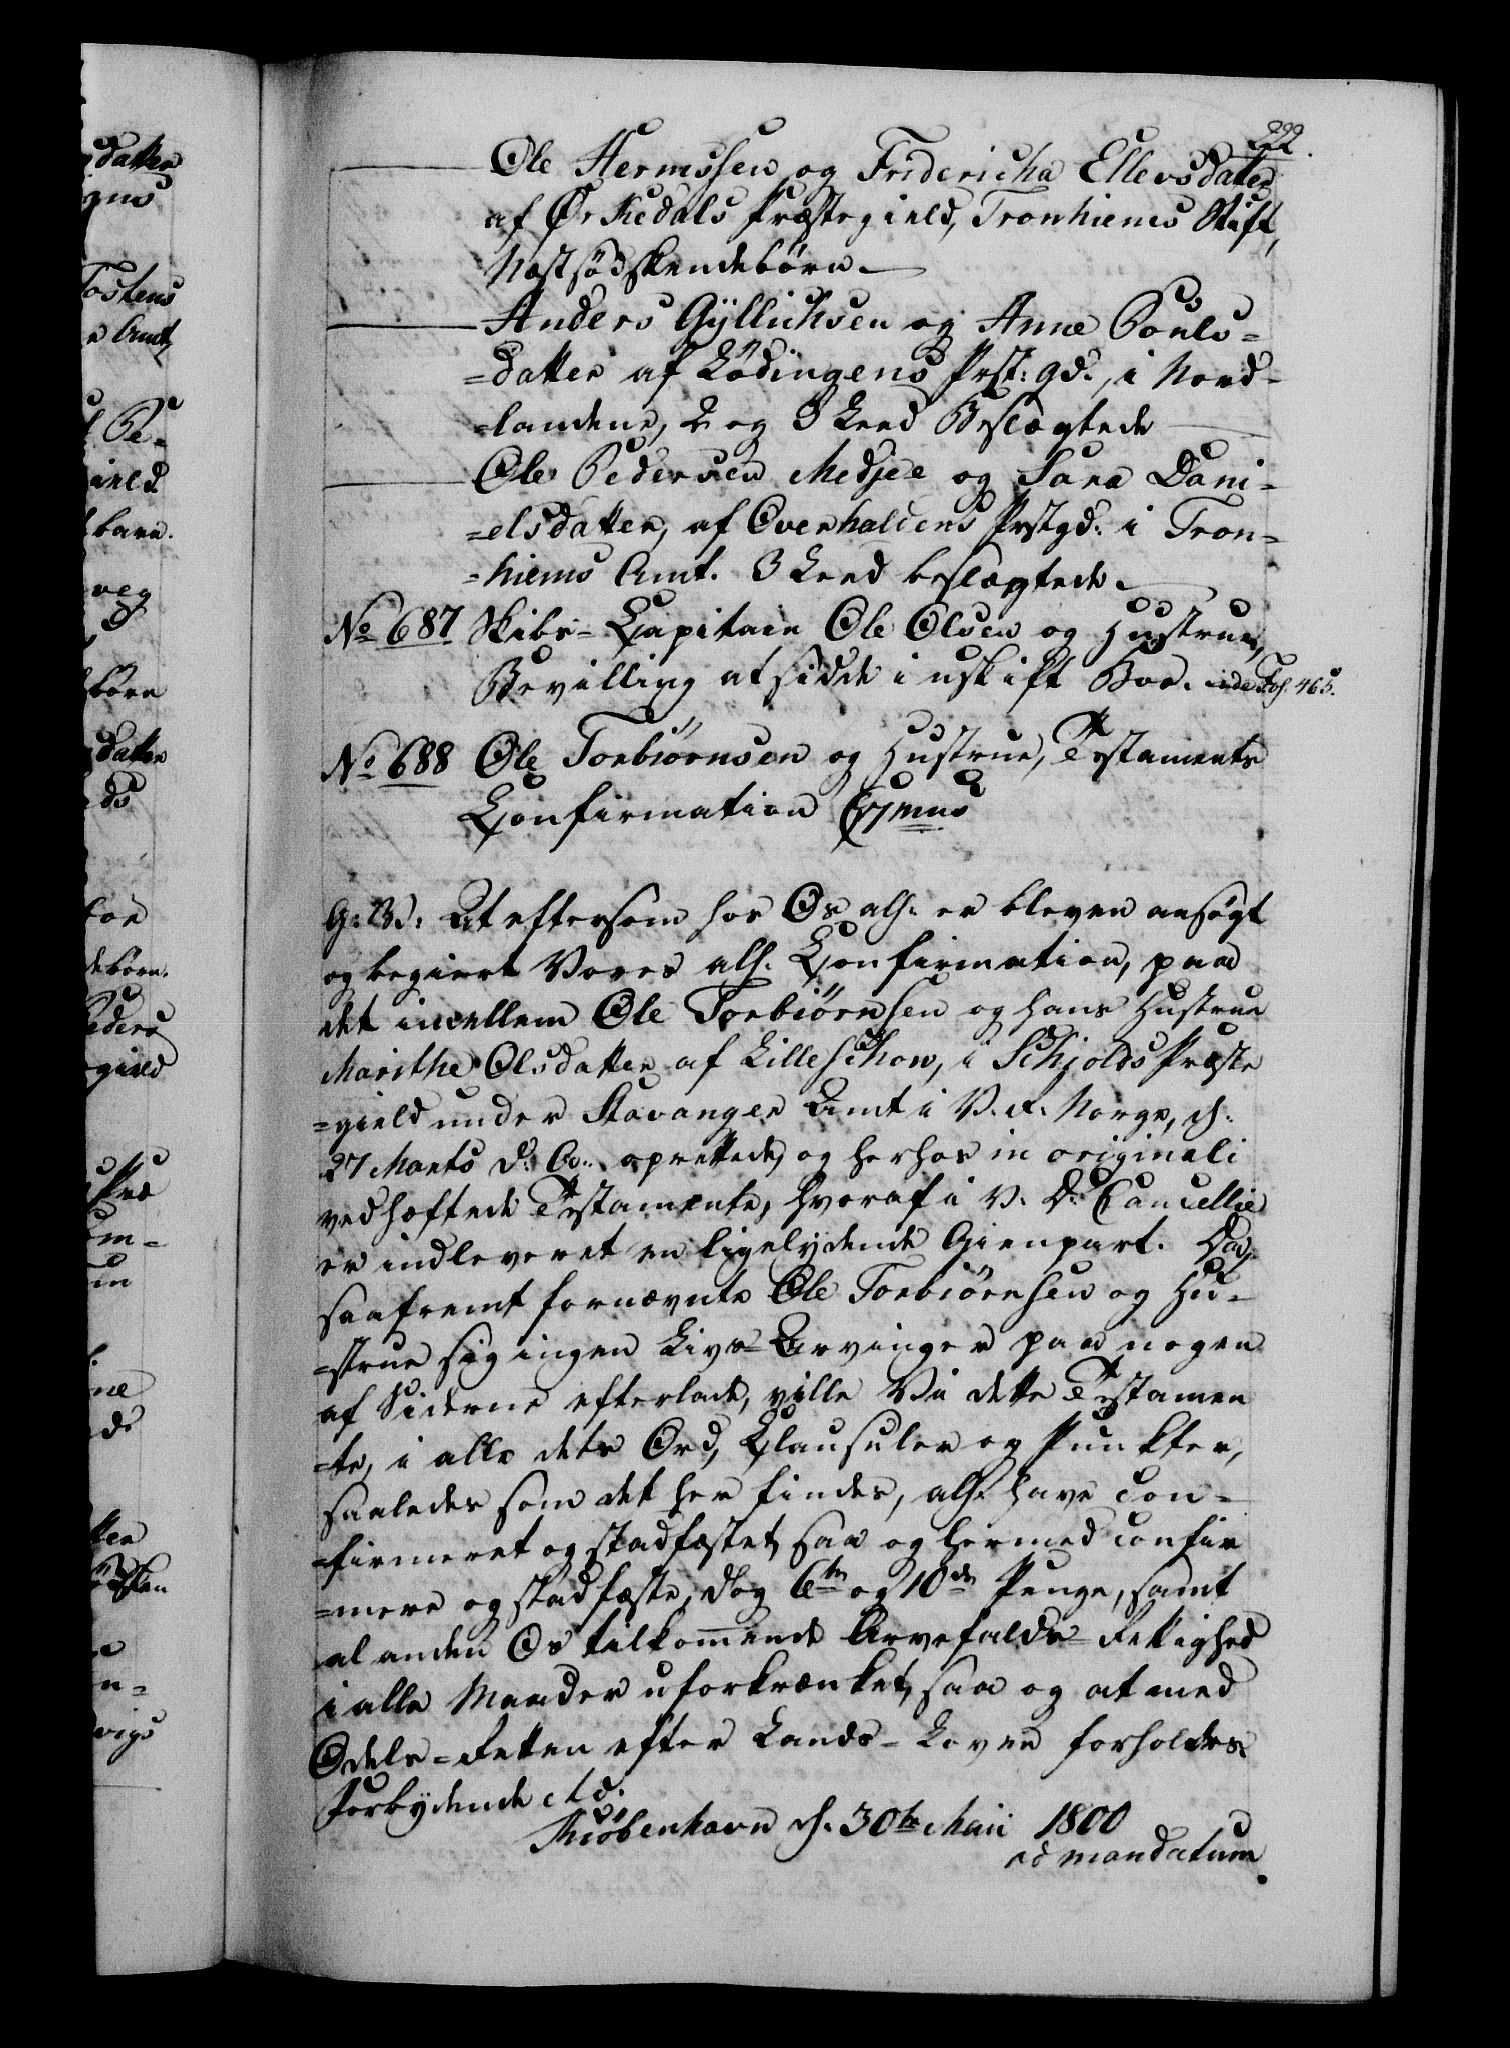 222.
Ole Hermssen og Fridericha Ellevsdatter
af Ørkedals Præstegield, Tronhiems Stift,
Næstsødskendebørn.
Anders Gÿllichsen og Anne Pouls-
=datter af Lødingens Prst: gd., i Nord-
=landene, 2 og 3 Leed Beslægtede
Ole Pedersen Medjee og Sara Dani-
=elsdatter, af Overhaldens Prstgd: i Tron-
=hiems Amt. 3 Leed beslægtede.
No 687 Skibs-Capitain Ole Olsen og Hustrue,
Bevilling at sidde i uskift Boe. vide Fol. 465.
No 688 Ole Torbiørnsen og Hustrue, Testaments
Confirmation
G: V: At eftersom hos Os alh. er bleven ansøgt
og begiert Vores alh. Confirmation, paa
det imellem Ole Torbiørnsen og hans Hustrue
Marithe Olsdatter af Lilleschow, i Schjolds Præste
=gield under Stavanger Amt i V. R. Norge, d.
27 Marts d: A: oprettede, og herhos in originali
vedhæftede Testamente, hvoraf i V. D. Cancellie
er indleveret en ligelydende Gienpart. Da,
saafremt fornævnte Ole Torbiørnsen og Hu-
=strue sig ingen Livs-Arvinger paa nogen
af Siderne efterlade, ville Vi dette Testamen
=te, i alle dets Ord, Clausuler og Puncter,
saaledes som det her findes, alh. have con-
=firmeret og stadfæstet, saa og hermed confir
=mere og stadfæste, dog 6te og 10de Penge, samt
al anden Os tilkommende Arvefalds-Rettighed
i alle Maader uforkrænket, saa og at med
Odels-Retten efter Lands-Loven forholdes.
Forbydende etc.
Kiøbenhavn d. 30te Maii 1800
ad mandatum.